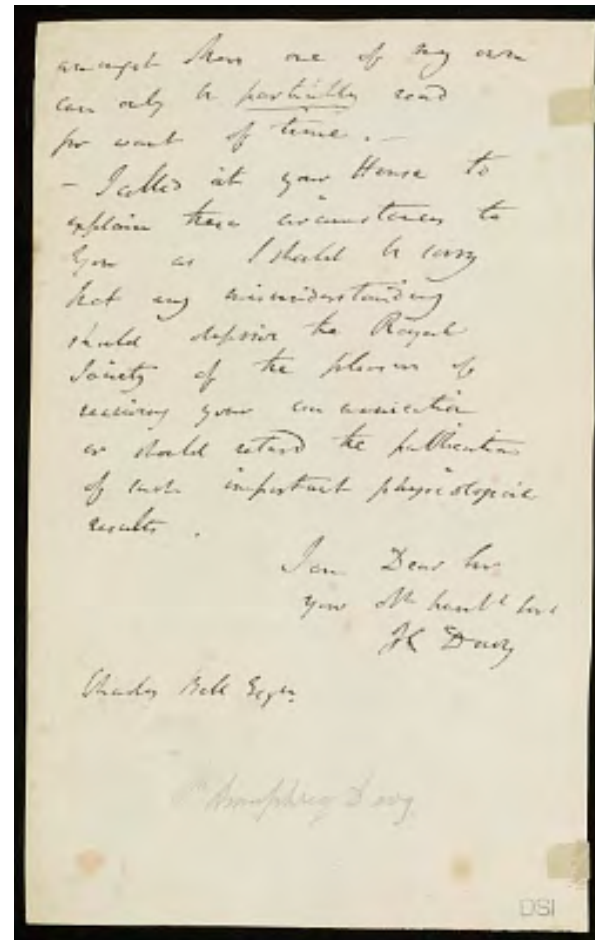 amongst them one of my own
can only be partially read
for want of time. —
— I called at your House to
explain these circumstances to
you as I should be sorry
that any misunderstanding
should deprive the Royal
Society of the pleasure of
receiving your communication
or should retard the publication
of such important physiological
results.
I am Dear Sir
your obt humbl sert
H Davy
Charles Bell Esqre
Humphrey Davy
DSI